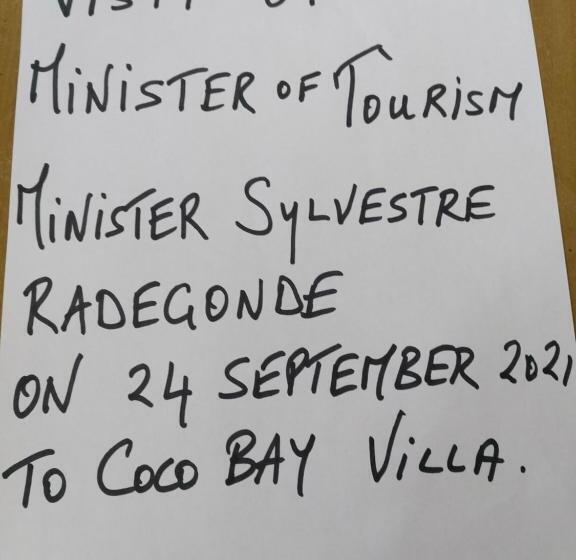 VISIT OF
MiNiSTER OF TOuRiSM
MiNiSTER SyLVESTRE
RADEGONDE
ON 24 SEPTEMBER 2021
TO COCO BAY ViLLA.